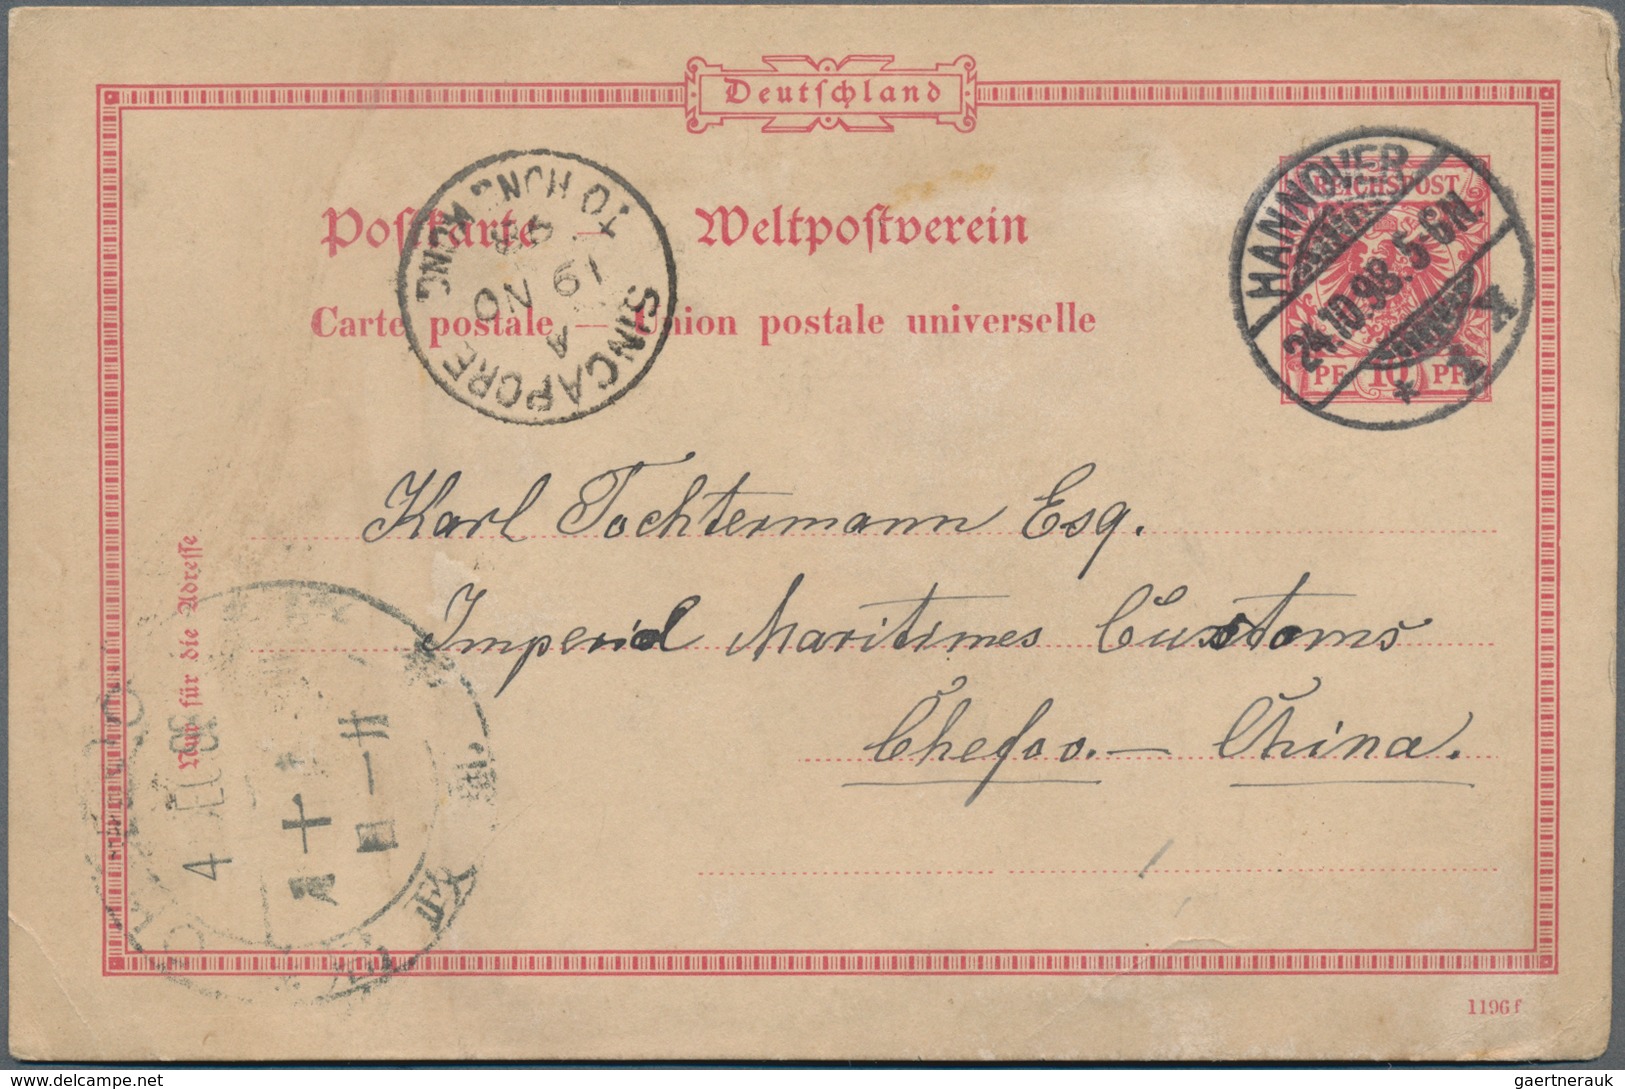 Deutschland
Postkarte — Weltpostverein
Carte postale — Union postale universelle
SINGAPORE TO HONG KONG
A
19 NO
98
HANNOVER
24.10.98. 5-6N.
* 1 *
REICHSPOST
10
PF PF
Karl Tochtermann Esq.
Imperial Maritimes Customs
Chefoo. — China.
Nur für die Adresse
4
十
月
廿
一
日
1196 f
gaertnerauk